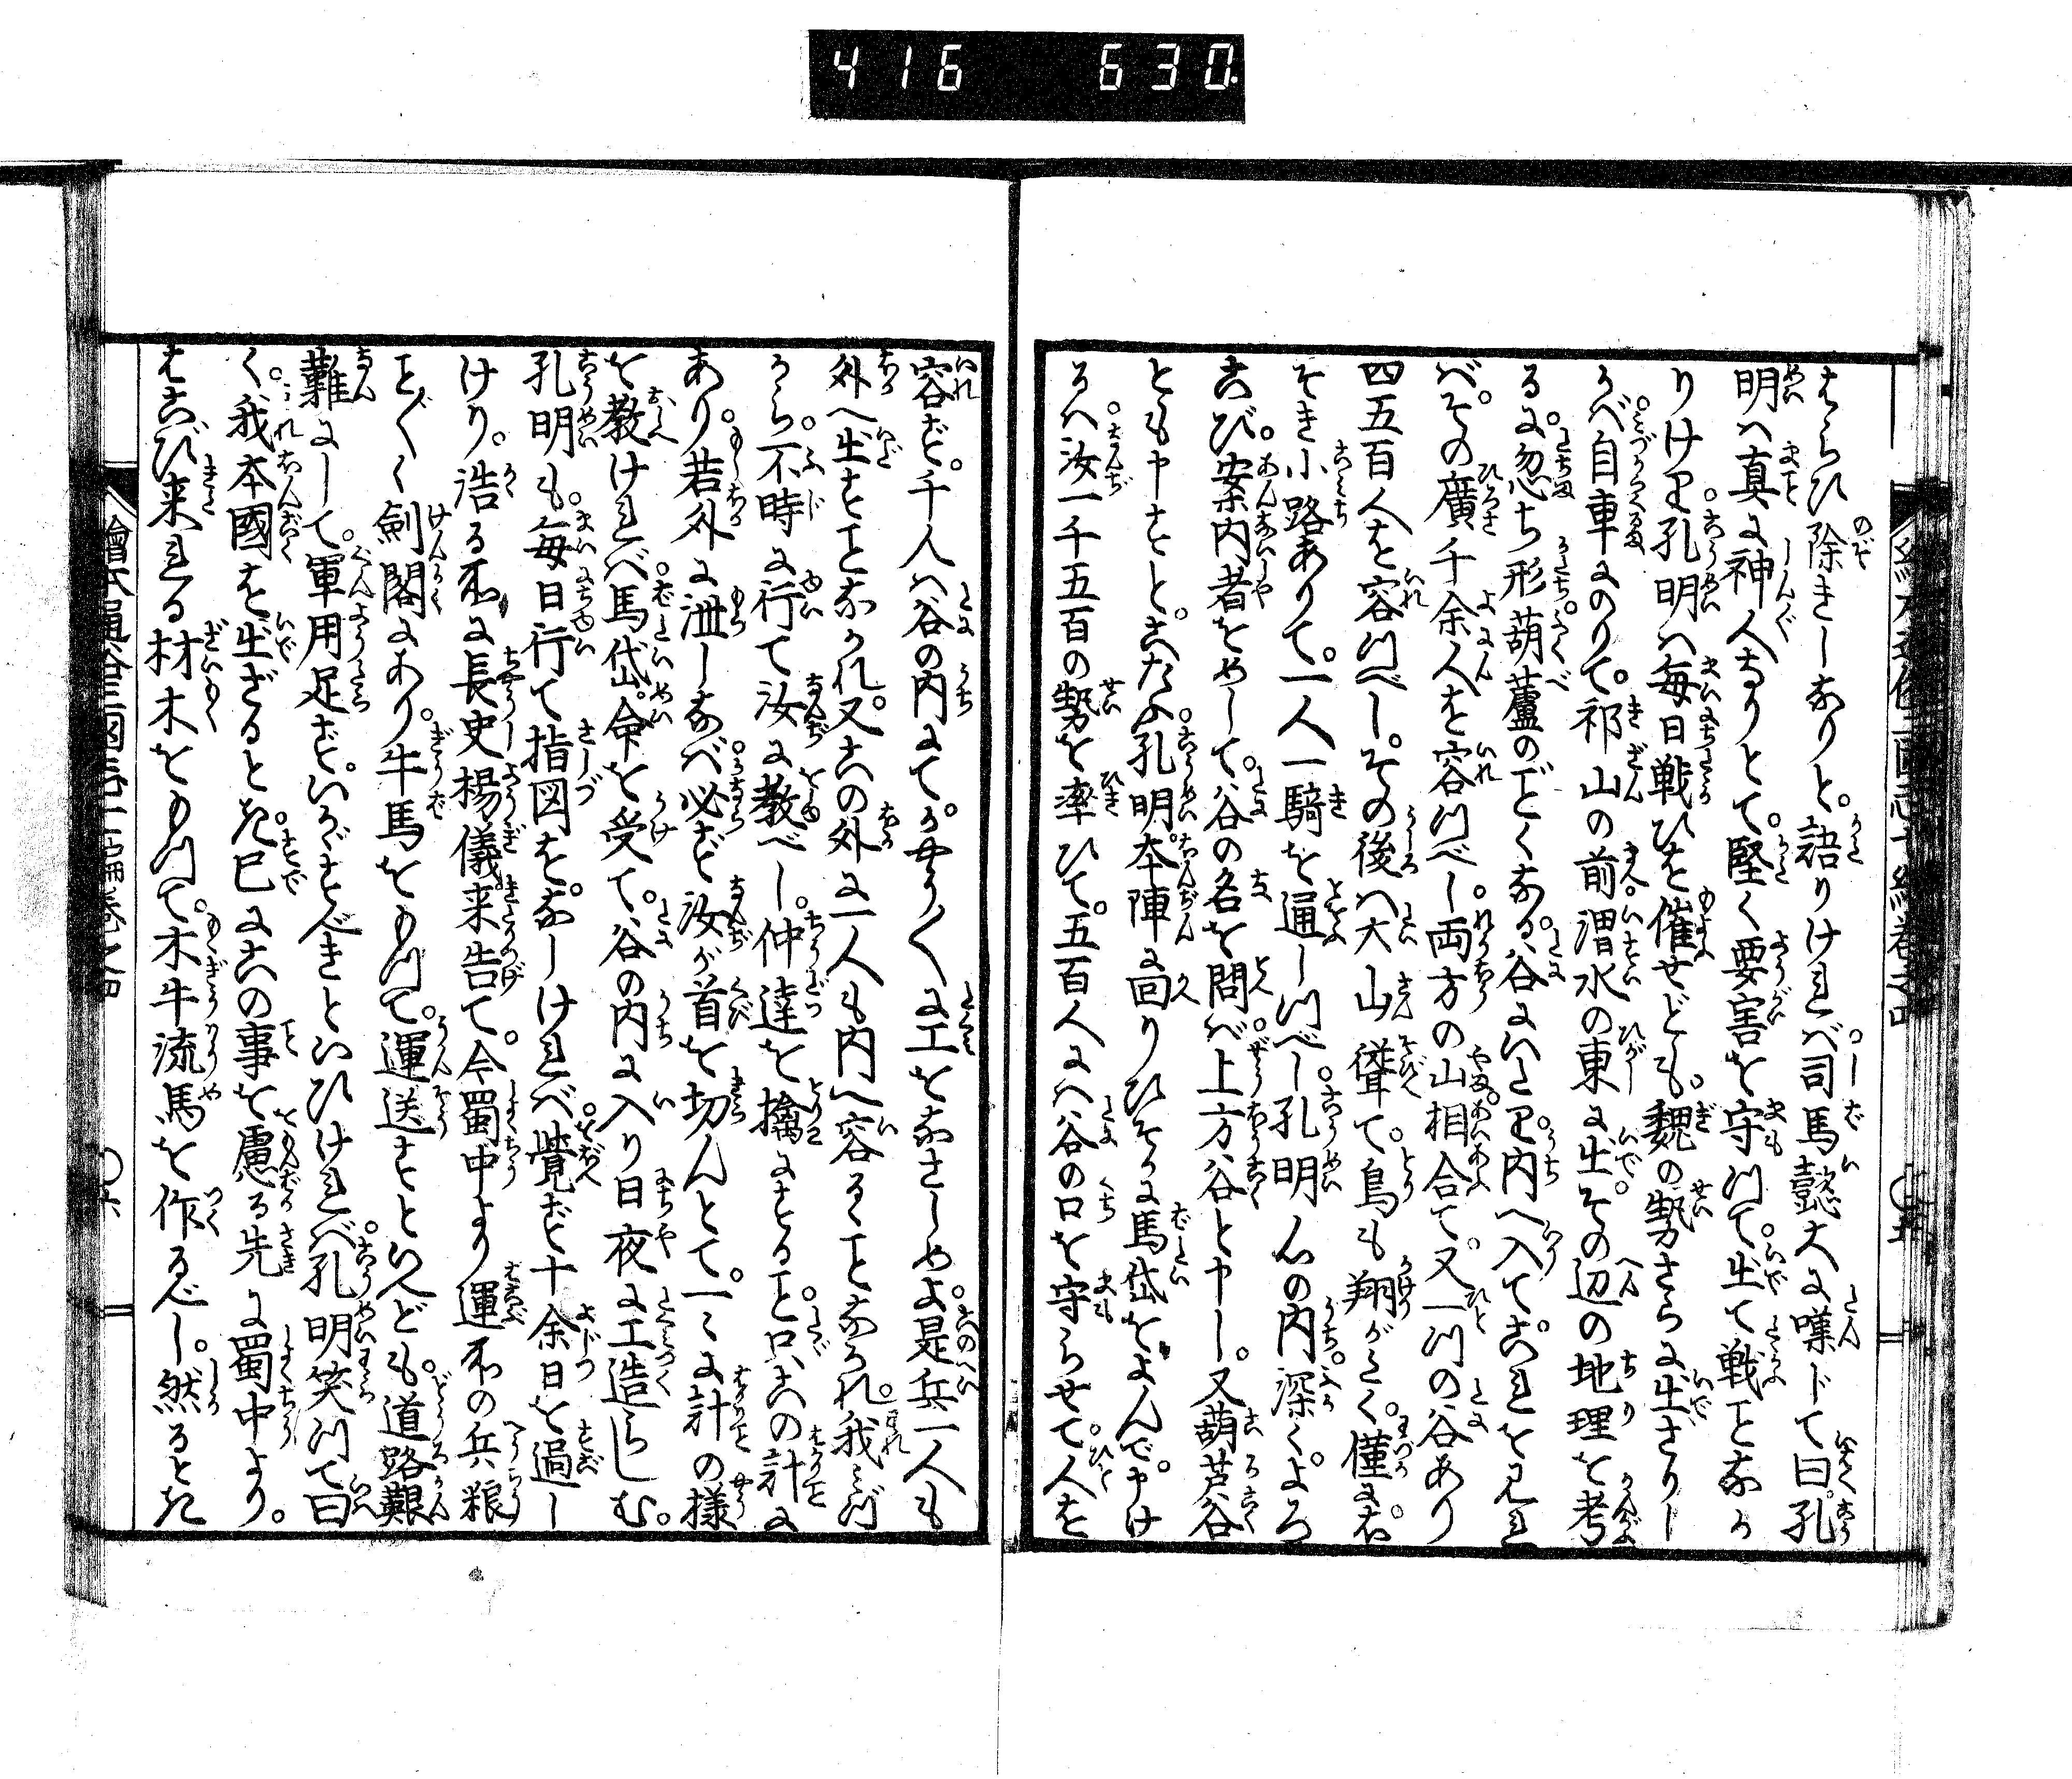 416 630
はらひ除きしなりと。語りければ。司馬懿大に嘆じて曰。孔
明は真に神人なりとて。堅く要害を守つて。出て戦ことなか
りけり。孔明は毎日戦ひを催せども。魏の勢さらに出ざりし
かば。自車にのりて。祁山の前。渭水の東に出。その辺の地理を考
るに。忽ち形。葫蘆のごとくなる。谷にいたり。内へ入てこれを見れ
ば。その廣千余人を容つべし。両方の山。相合て。又一つの谷あり
四五百人を容つべし。その後は大山聳て。鳥も翔がたく。僅に右
そき小路ありて。一人一騎を通しつべし。孔明心の内。深くよろ
こび。案内者をめして。谷の名を問ば。上方谷と申し。又葫芦谷
とも申すと。こたふ。孔明。本陣に回りひそかに馬岱をよんで。申け
るは。汝一千五百の勢を率ひて。五百人には谷の口を守らせて。人を
容ず。千人は谷の内にて。かやうくに工をなさしめよ。是兵一人も
外へ出すことなかれ。又この外に一人も内へ容ることなかれ。我みづ
から。不時に行て汝に教べし。仲達を擒にすること。只この計に
あり。若外に洩しなば。必ず汝が首を切んとて。一々に計の様
を教ければ。馬岱。命を受て。谷の内に入り日夜に工造らしむ。
孔明も。毎日行て指図を。なしければ。覚ず十余日を過し
けり。浩る所に長史楊儀来告て。今蜀中より運所の兵粮
ことごとく剣閣にあり。牛馬をもつて。運送すといへども。道路艱
難にして。軍用足ず。いかがすべきといひければ。孔明笑つて曰
く。我本國を出ざるとき。已にこの事を慮る先に蜀中より。
はこび来れる材木をもつて。木牛流馬を作るべし。然るとき